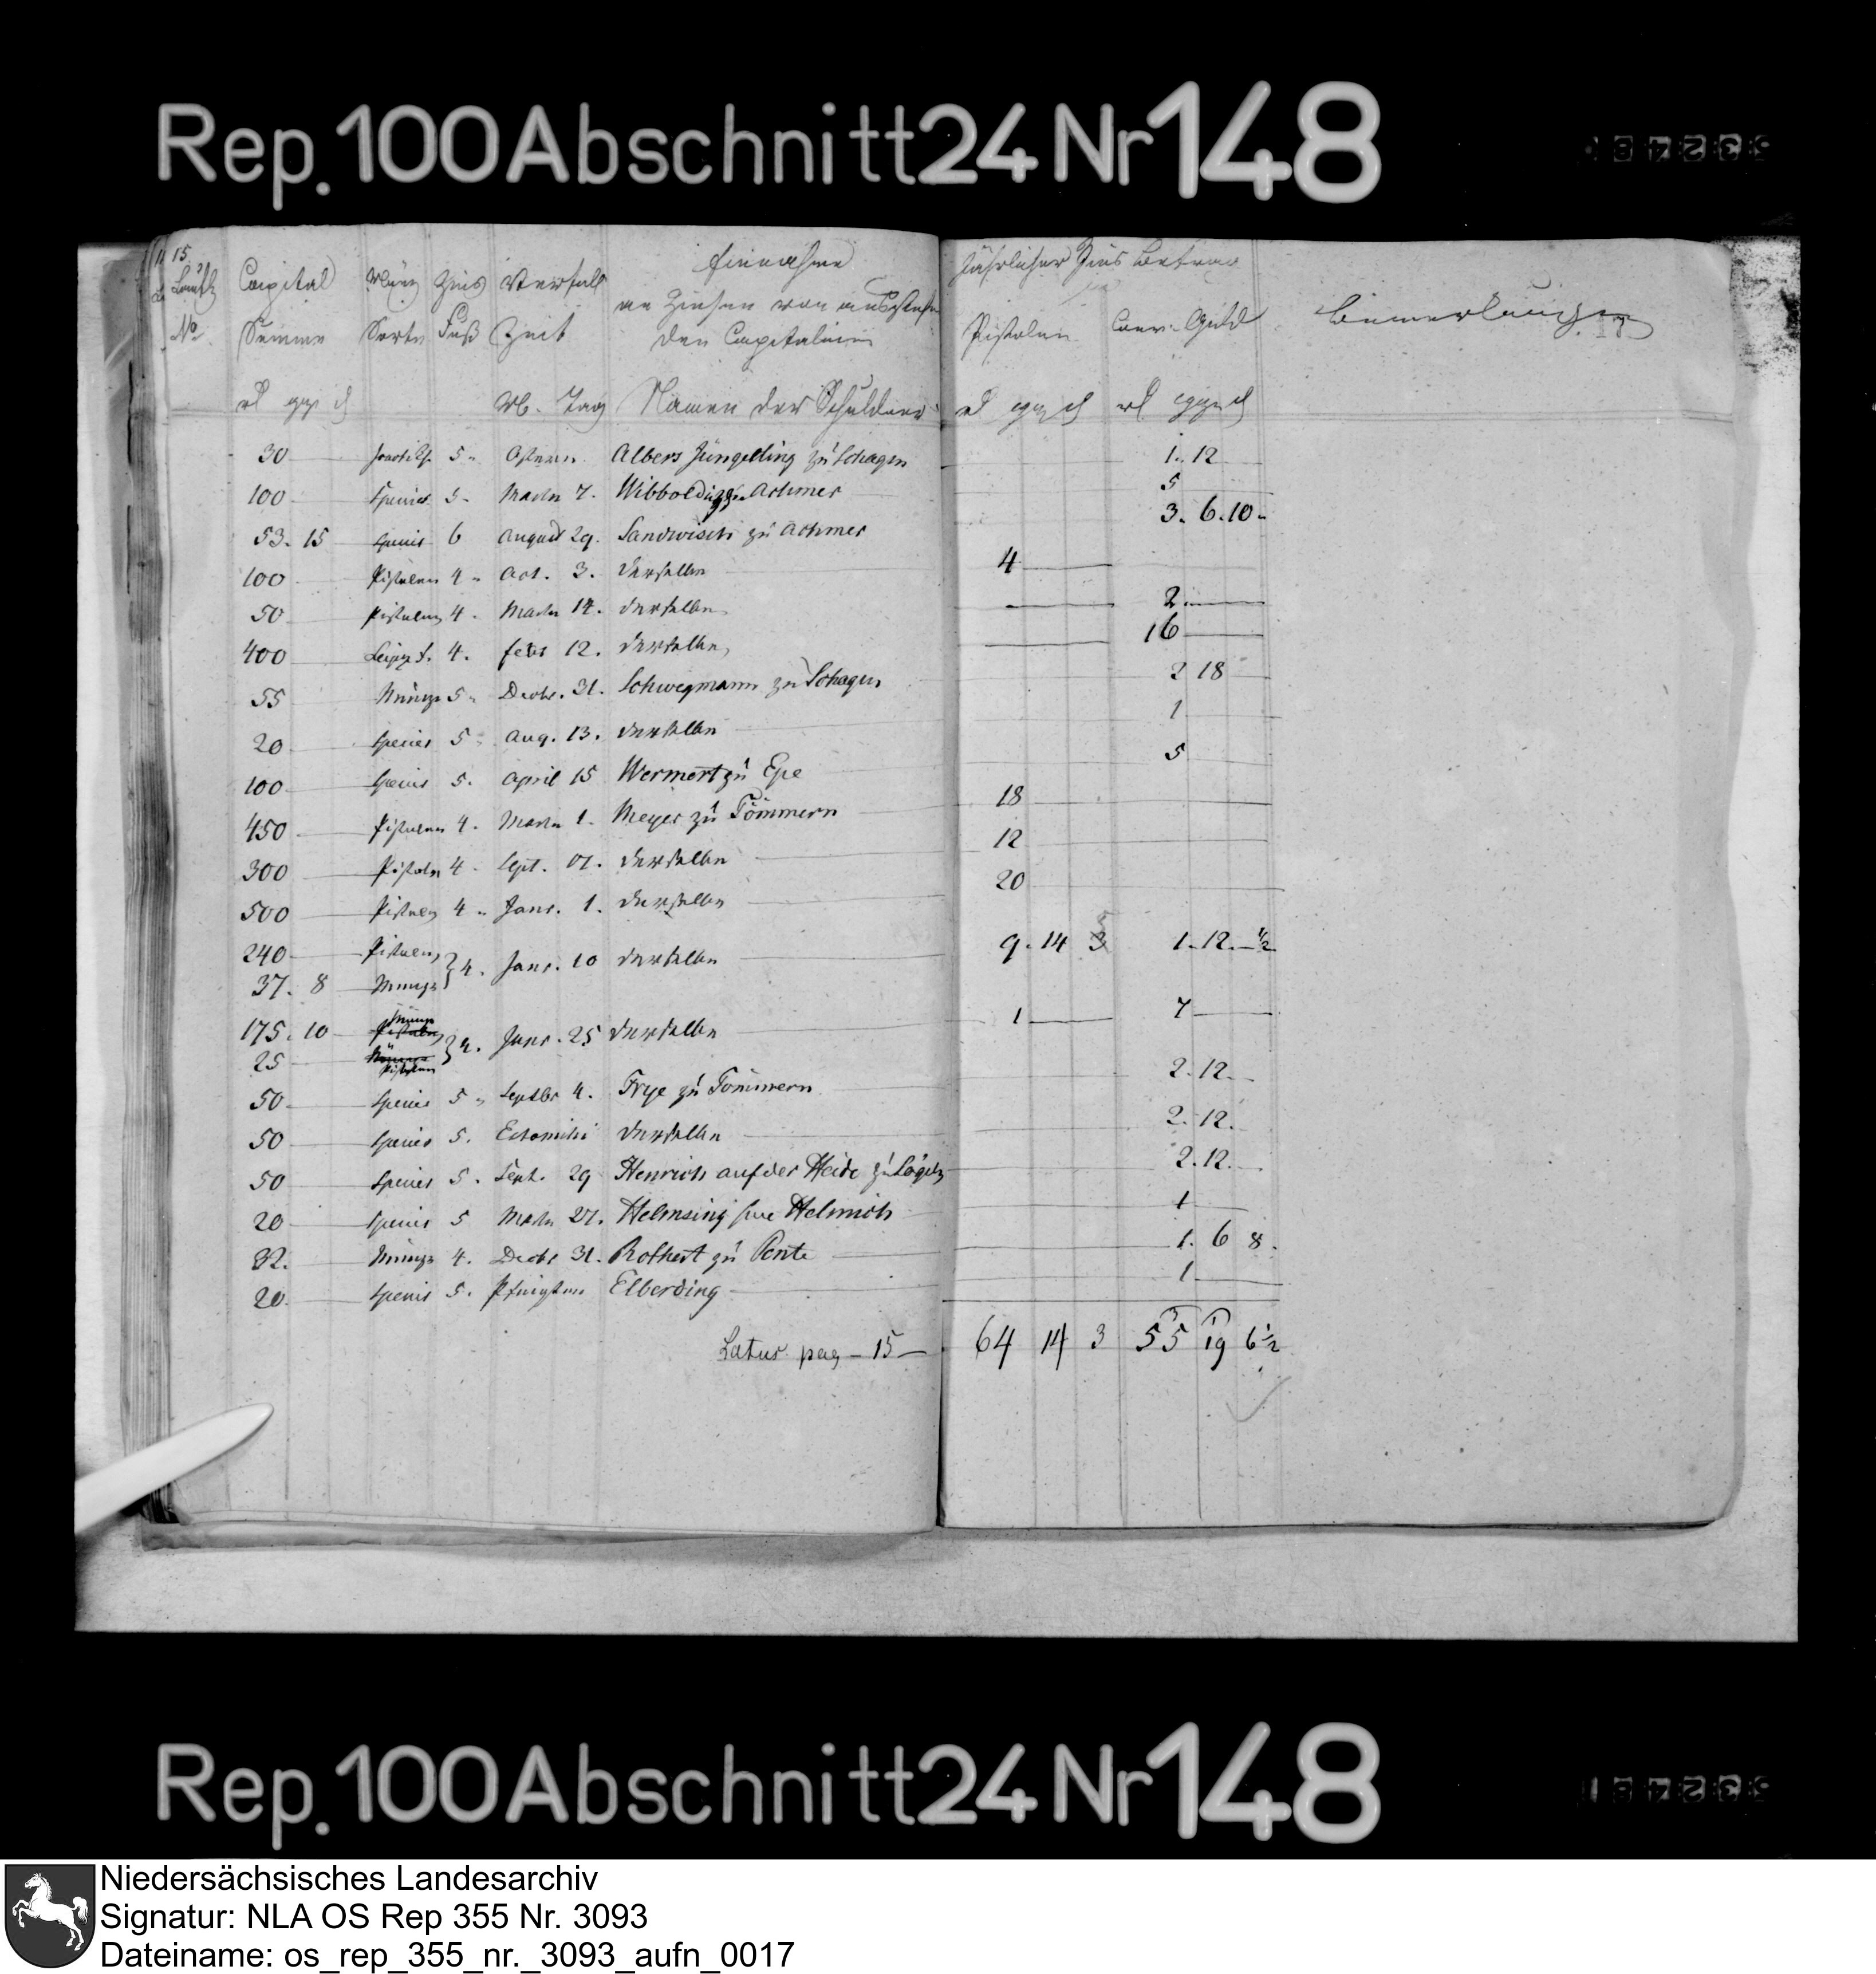 Rep. 100 Abschnitt 24 Nr 148
15.
Laufd. Capital Münz Zins Verfall Einnahme Jährlicher Zins Betrag
an Zinsen von ausstehen
No. Summe Sorte Fuß Zeit den Capitalien Pistolen Conv. Geld Bemerkungen
rl ggr d M. Tag Namen der Schuldner rl ggr d rl ggr d
30 5 Ostern Albers Jüngelling zu Schagen 1. 12
100 Species 5 Martn 7. Wibbolding zu Achmer 5
53. 15 Species 6 August 29. Sandwisch zu Achmer 3. 6. 10
100 Pistolen 4 Oct. 3. derselbe 4
50 Pistolen 4 Martn 14. derselbe 2
400 4. Febr 12. derselbe 16
55 Münze 5 Decbr. 31. Schwegmann zu Schagen 2 18
20 Species 5 Aug. 13. derselbe 1
100 Species 5. April 15 Wermert zu Epe 5
450 Pistolen 4. Martn 1. Meyer zu Tömmern 18
300 Pistolen 4 Sept. derselbe 12
500 Pistolen 4 Janr. 1. derselbe 20
240 Pistolen
4. Janr. 10 derselbe 9. 14 3 1. 12. ½
37. 8 Münze
175. 10 Münze Pistolen
4. Janr. 25 derselbe 1 7
25 Münze Pistolen
50 Species 5 Septbr 4. Frye zu Tömmern 2. 12.
50 Species 5. derselbe 2. 12.
50 Species 5. Sept. 29 Henrich auf der Heide zu Lögeln 2. 12.
20 Species 5 Martn 27. Helmsing sive Helmich 1
32. Münze 4. Decbr 31. Rothert zu Pente 1. 6 8.
20 Species 5. Pfingsten Elberding 1
Latus pag 15 64 14 3 55 19 6½
Rep. 100 Abschnitt 24 Nr 148
Niedersächsisches Landesarchiv
Signatur: NLA OS Rep 355 Nr. 3093
Dateiname: os_rep_355_nr._3093_aufn_0017